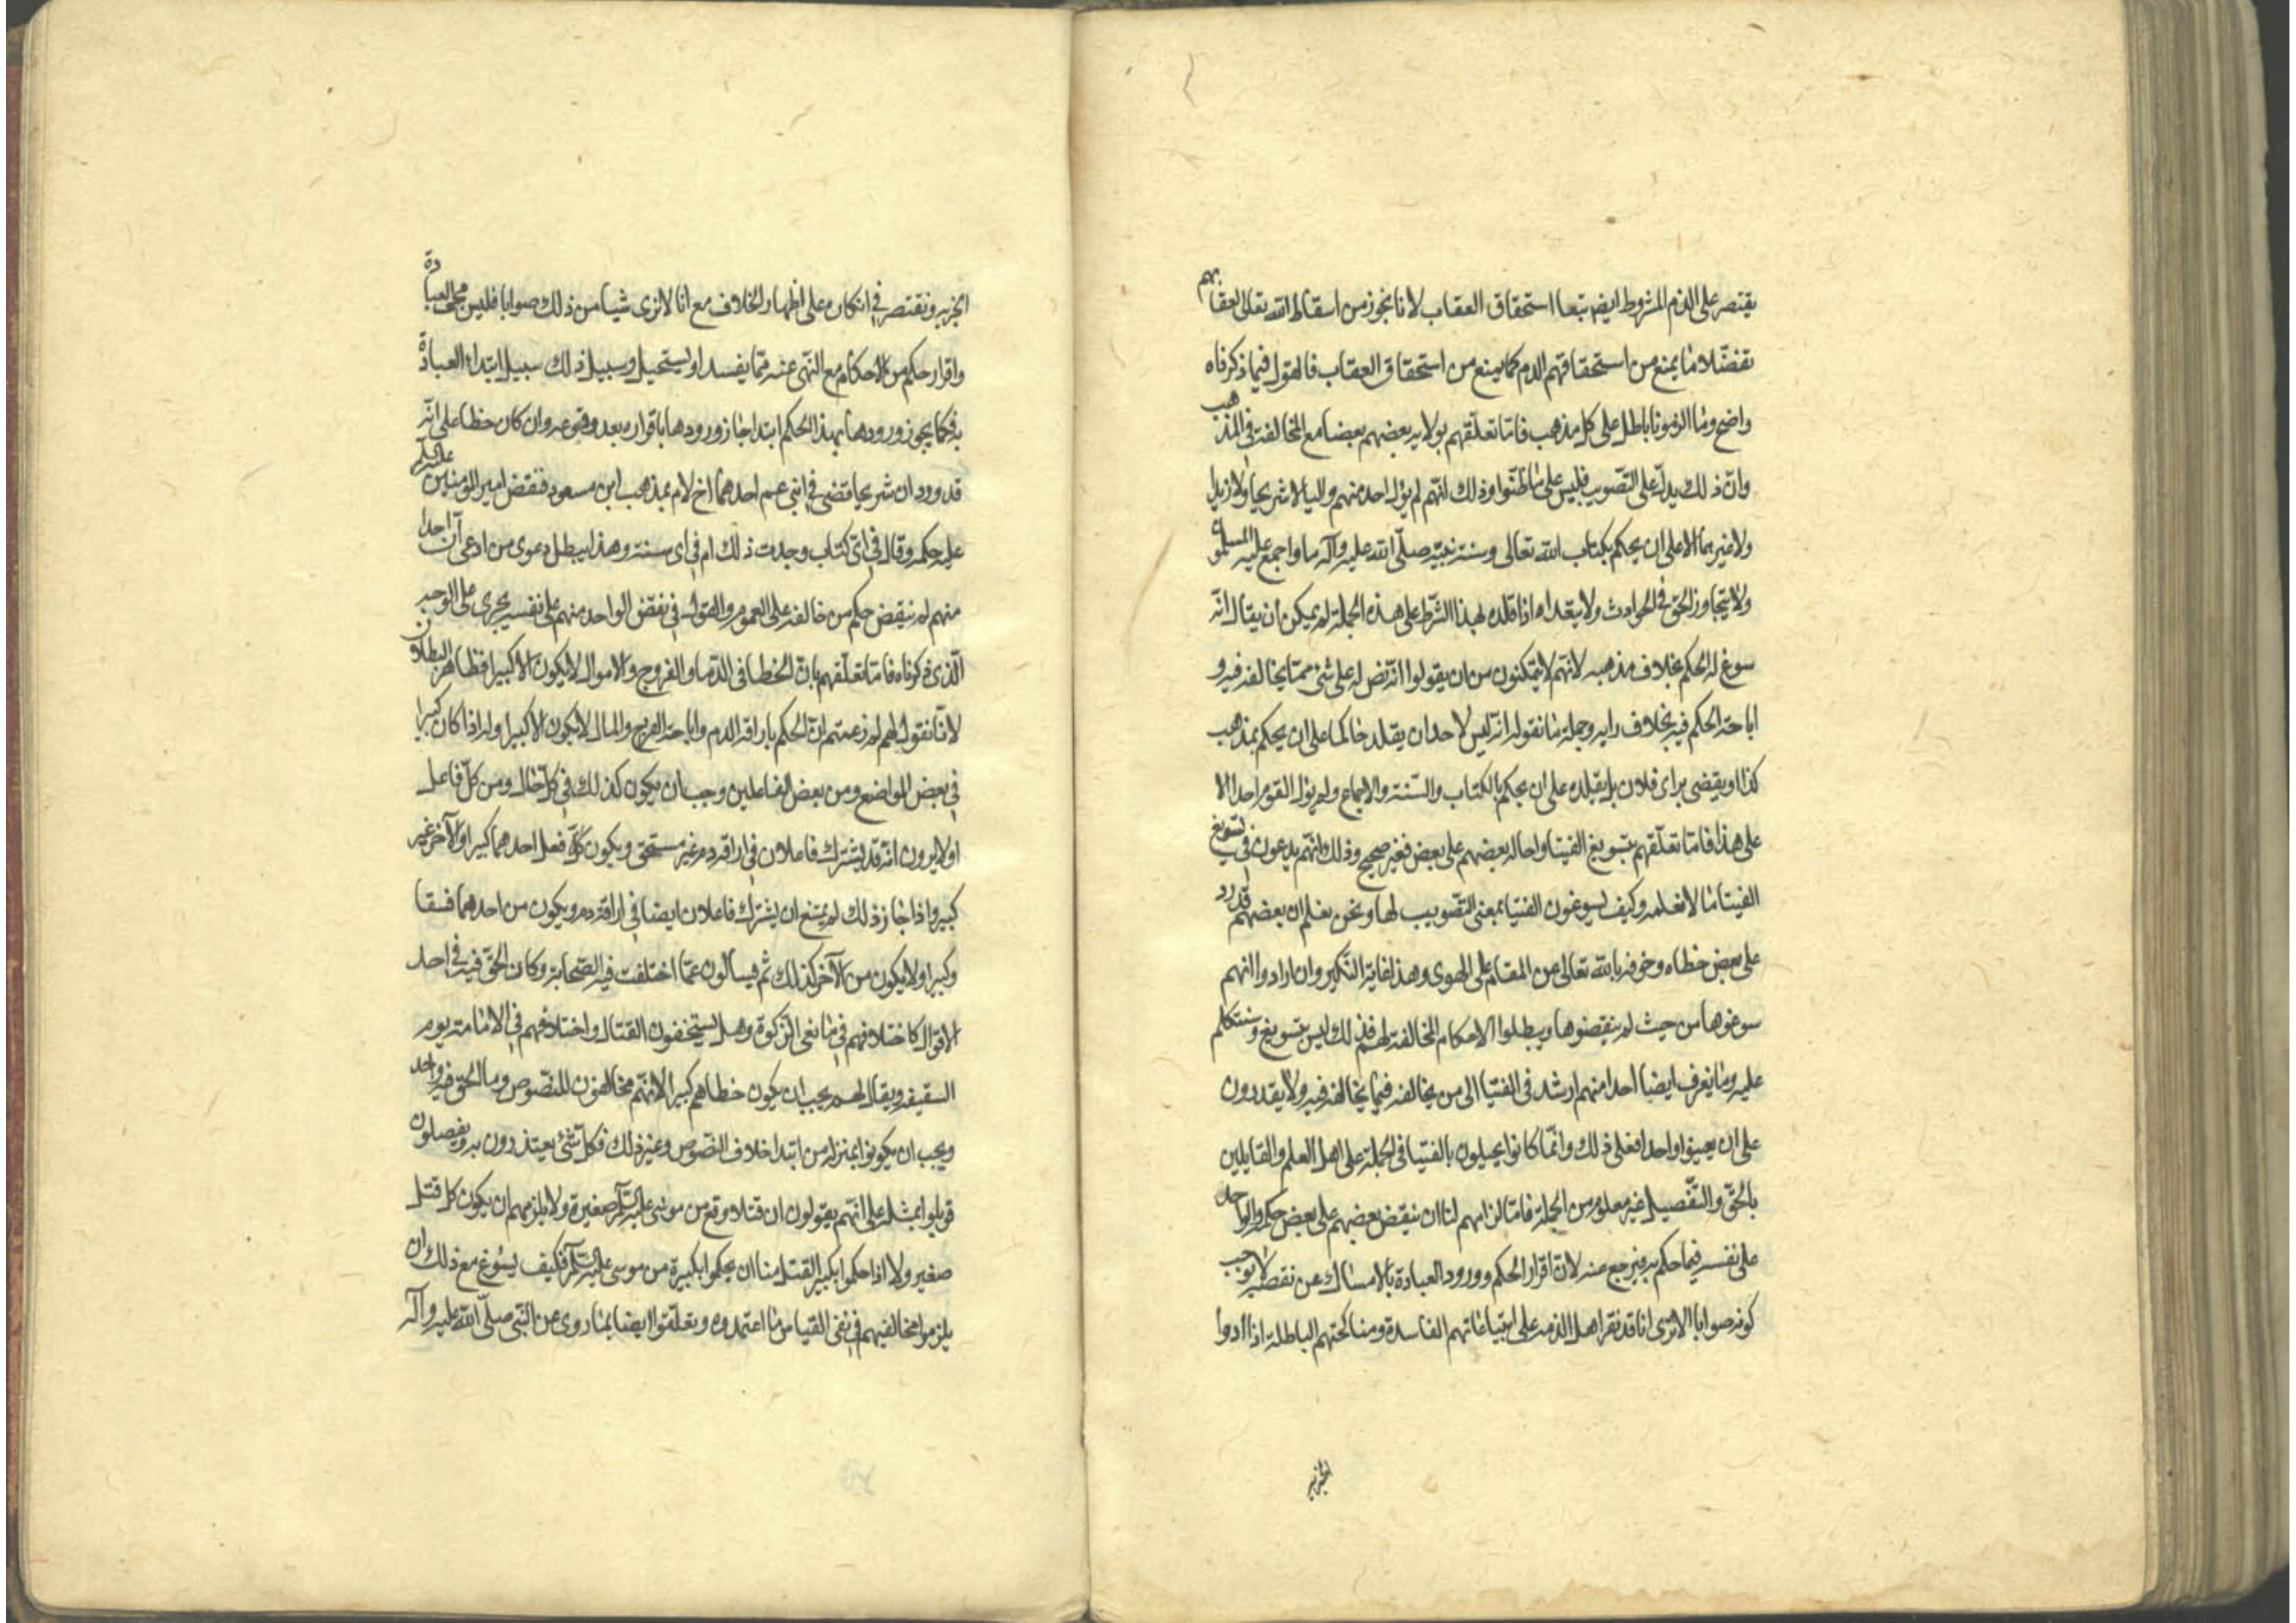 يقتصر على الذم المشروط ايضا تبعا استحقاق العقاب لانا نجوز من اسقاط الله تعالى العقابهم
تفضلا ما يمنع من استحقاقهم الذم كما يمنع من استحقاق العقاب فالقول فيما ذكرناه
واضح وما الزمونا باطل على كل مذهب فاما تعلقهم بولاية بعضهم بعضا مع المخالفة في المذهب
وان ذلك يدل على التصويب فليس على ما ظنوا وذلك انهم لم يول احد منهم واليا لا شريحا ولا زيدا
ولا غيرهما الا على ان يحكم بكتاب الله تعالى وسنة نبيه صلى الله عليه وآله وما اجمع عليه المسلمون
ولا يتجاوز الحق في الحوادث ولا يتعداه اذا قلده بهذا الشرط على هذه الجملة لم يمكن ان يقال انه
سوغ له الحكم بخلاف مذهبه لانهم لا يتمكنون من ان يقولوا انه نص له على شئ مما يخالفه فيه و
اباحة الحكم فيه بخلاف رايه وجملة ما نقوله انه ليس لاحد ان يقلد حاكما على ان يحكم بمذهب
كذا او يقضى براى فلان بل يقلده على ان يحكم بالكتاب والسنة والاجماع ولم يول القوم احدا الا
على هذا فاما تعلقهم بتسويغ الفتيا واحالة بعضهم على بعض فغير صحيح وذلك انهم يدعون في تسويغ
الفيتا ما لا نعلمه وكيف يسوغون الفتيا بمعنى التصويب لها ونحن نعلم ان بعضهم قد رد
على بعض خطاه وخوفه بالله تعالى من المقام على الهوى وهذا غاية النكير وان ارادوا انهم
سوغوها من حيث لم ينقضوها ويبطلوا الاحكام المخالفة لهم فذلك ليس بتسويغ وسنتكلم
عليه وما يعرف ايضا احدا منهم ارشد في الفتيا الى من يخالفه فيما يخالفه فيه ولا يقدرون
على ان يعينوا واحدا فعل ذلك وانما كانوا يحيلون بالفتيا في الجملة على اهل العلم والقايلين
بالحق والتفصيل غير معلوم من الجملة فاما الزامهم لنا ان ينقض بعضهم على بعض حكمه والواحد
على نفسه فيما حكم به فيرجع عنه لان اقرار الحكم وورود العبادة بالامساك عن نقضه لا يوجب
كونه صوابا الا ترى انا قد نقر اهل الذمة على ابتياعاتهم الفاسدة ومناكحتهم الباطلة اذا ادوا
الجزية
الجزية ونقتصر في انكاره على اظهار الخلاف مع انا لا نرى شيا من ذلك صوابا فليس مجى العبادة
واقرار حكم من الاحكام مع النهى عنه مما يفسد او يستحيل وسبيل ذلك سبيل ابتداء العبادة
به فكما يجوز ورودها بهذا الحكم ابتدا جاز ورودها باقراره بعد وقوعه وان كان خطا على انه
قد ورد ان شريحا قضى في ابني عم احدهما اخ لام بمذهب ابن مسعود فنقض امير المومنين عليه السلم
عليه حكمه وقال في اى كتاب وجدت ذلك ام في اى سنة وهذا يبطل دعوى من ادعى ان احدا
منهم لم ينقض حكم من خالفه على العموم والقول في نقض الواحد منهم على نفسه يجرى على الوجه
الذى ذكرناه فاما تعلقهم بان الخطا في الدما والفروج والاموال لا يكون الا كبيرا فظاهر البطلان
لانا نقول لهم لم زعمتم ان الحكم باراقة الدم واباحة الفرج والمال لا يكون الا كبيرا ولم اذا كان كبيرا
في بعض المواضع ومن بعض الفاعلين وجب ان يكون كذلك في كل حال ومن كل فاعل
اولا يرون انه قد يشترك فاعلان في اراقة دم غير مستحق ويكون كل فعل احدهما كبيرا والآخر غير
كبير واذا جاز ذلك لم يمتنع ان يشترك فاعلان ايضا في اراقة دم ويكون من احدهما فسقا
وكبيرا ولا يكون من الآخر كذلك ثم يسالون عما اختلفت فيه الصحابة وكان الحق فيه في احد
الاقوال كاختلافهم في مانعى الزكوة وهل يستحقون القتال واختلافهم في الامامة يوم
السقيفة ويقال لهم يجب ان يكون خطاهم كبيرا لانهم مخالفون للنصوص وما الحق فيه واحد
ويجب ان يكونوا بمنزلة من ابتدا خلاف النصوص وغير ذلك فكل شئ يعتذرون به ويفصلون
قوبلوا بمثله على انهم يقولون ان قتلا وقع من موسى عليه السلم صغيرة ولا يلزمهم ان يكون كل قتل
صغير ولا اذا حكموا بكبير القتل منا ان يحكموا بكبيرة من موسى عليه السلم فكيف يسوغ مع ذلك ان
يلزموا مخالفيهم في نفى القياس ما اعتمدوه وتعلقوا ايضا بما روى عن النبي صلى الله عليه وآله